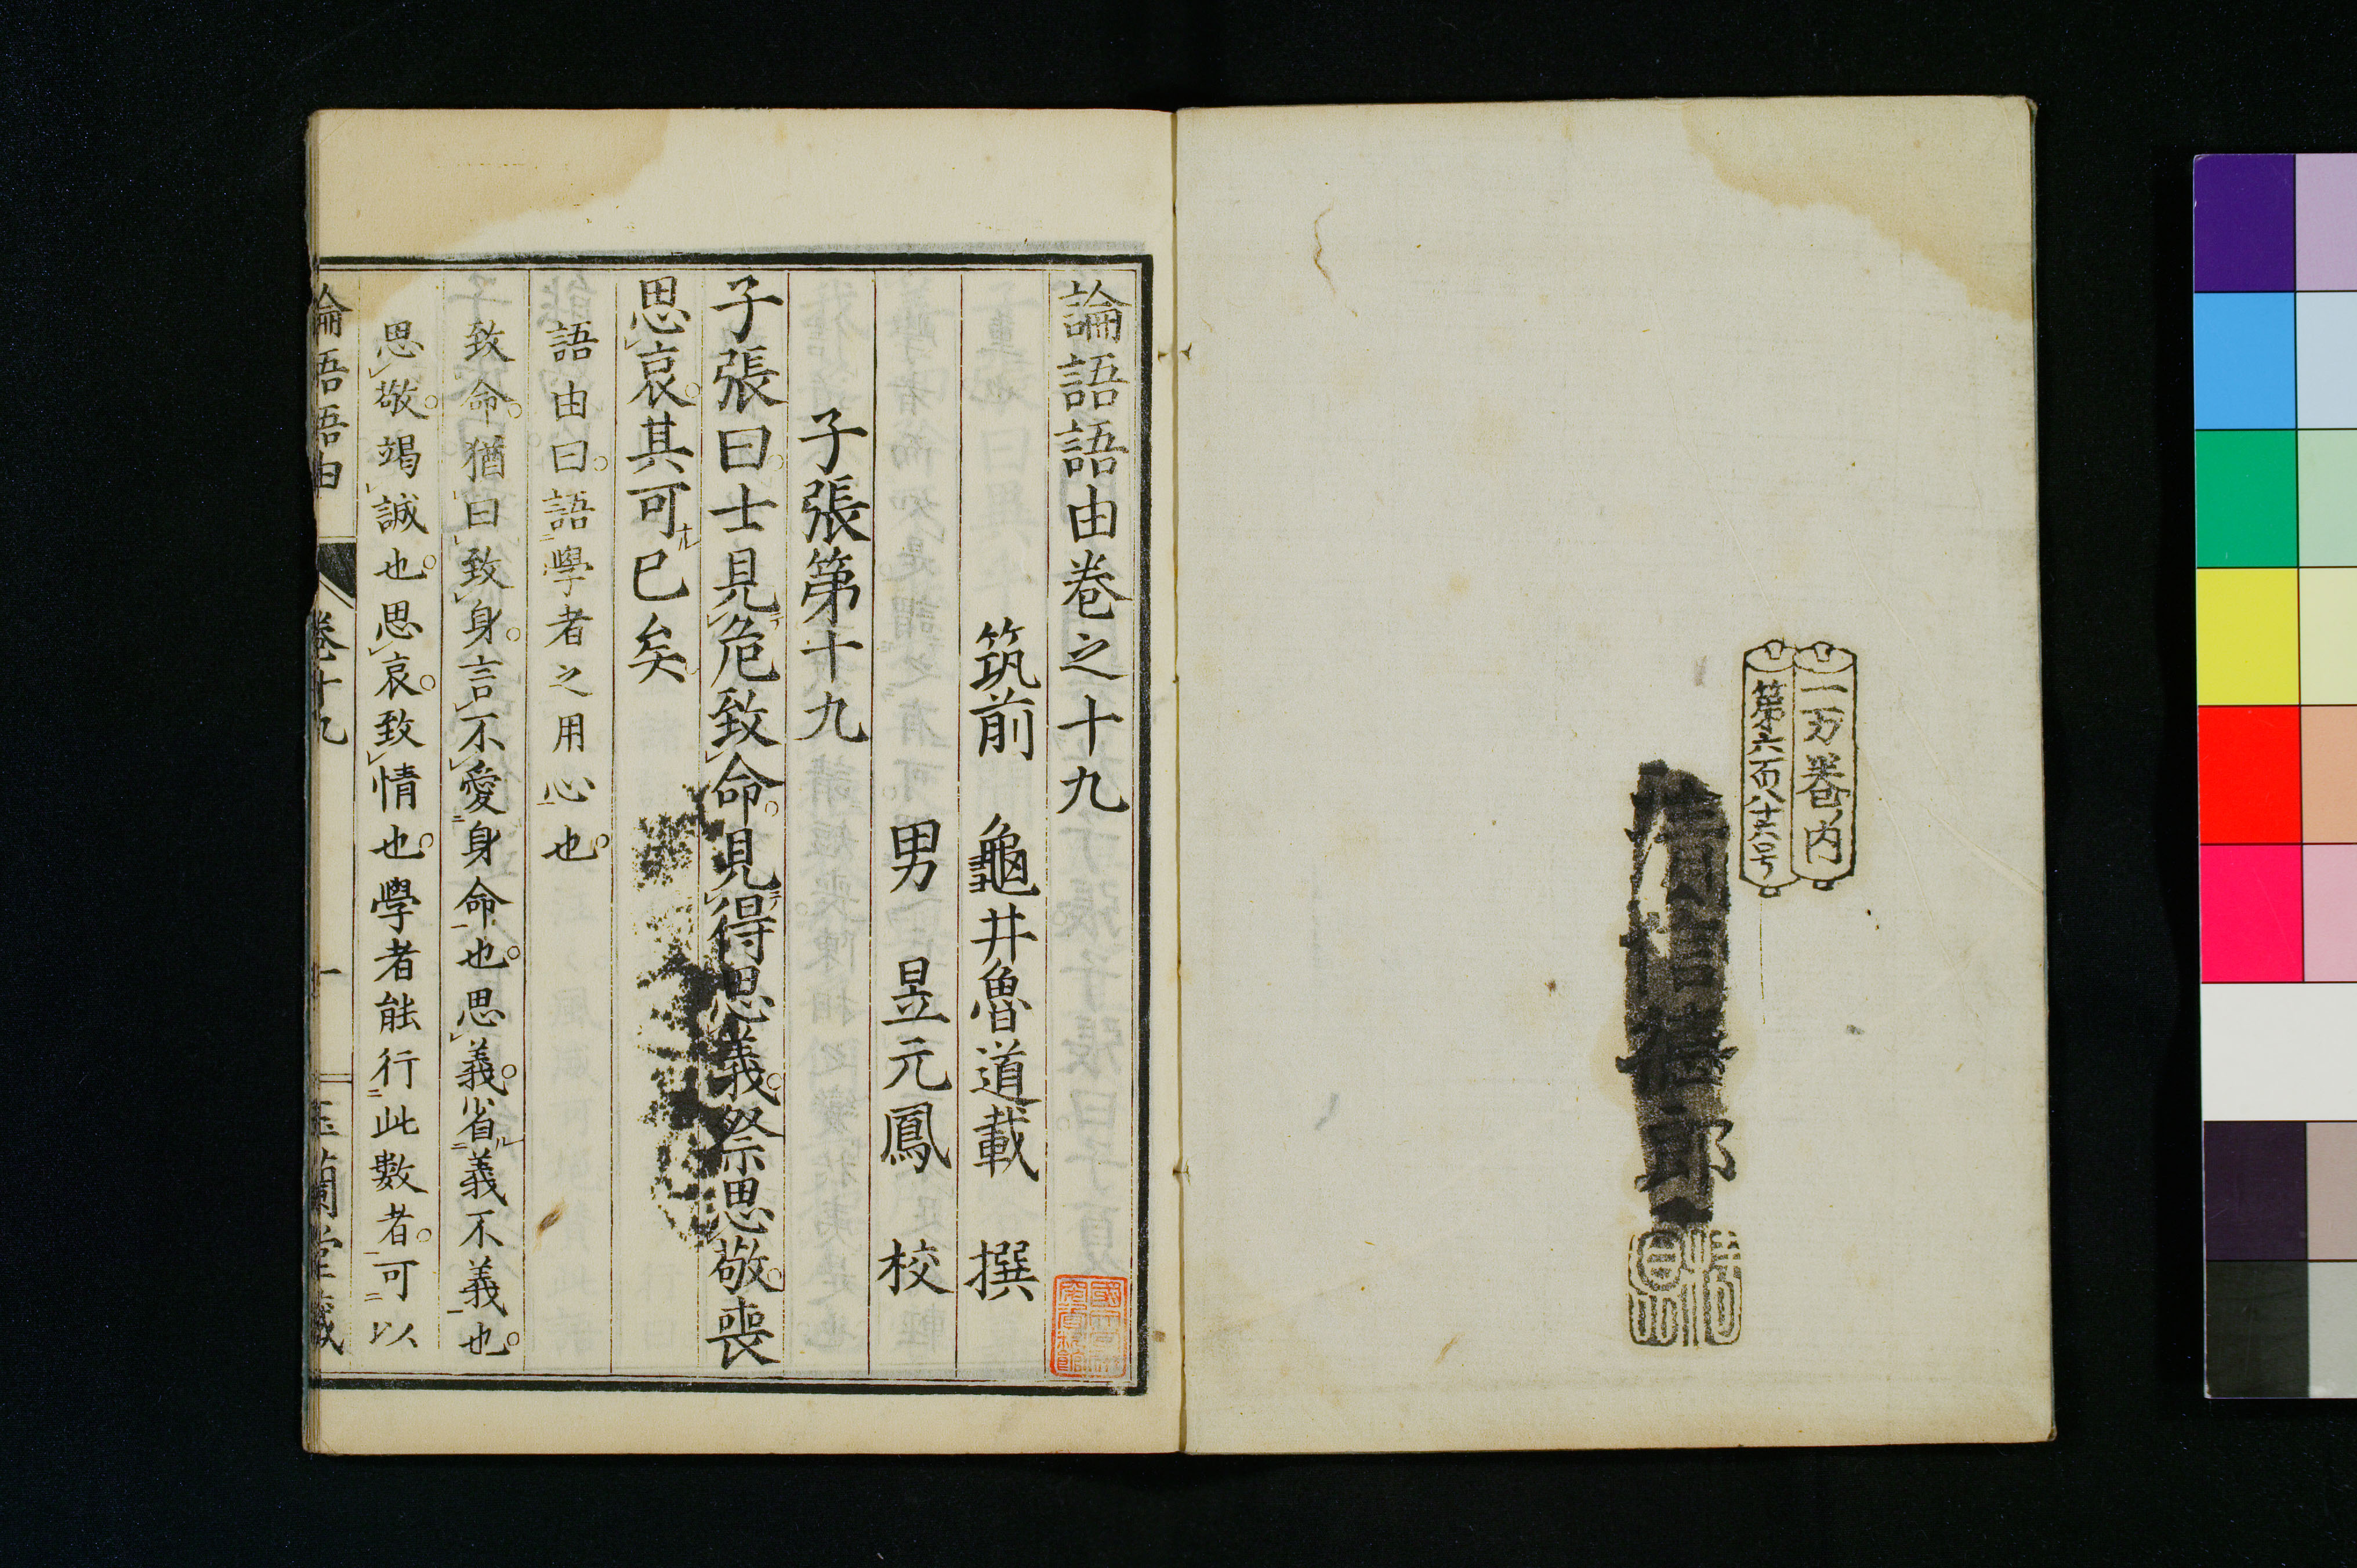 一万巻内
第六百八十六号
論語語由卷之十九
筑前　龜井魯道載　撰
男　昱元鳳　校
子張第十九
子張曰士見危致命見得思義祭思敬喪
思哀其可已矣
語由曰語學者之用心也
致命猶曰致身言不愛身命也思義省義不義也
思敬竭誠也思哀致情也學者能行此數者可以
論語語由　卷十九　一　玉蘭堂藏